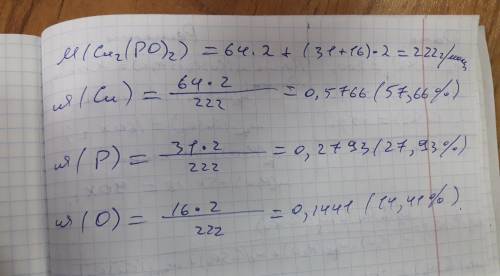 M(Cu₂(PO)₂) = 64·2 + (31+16)·2 = 222 г/моль
ω(Cu) = 64·2 / 222 = 0,5766 (57,66%)
ω(P) = 31·2 / 222 = 0,2793 (27,93%)
ω(O) = 16·2 / 222 = 0,1441 (14,41%).